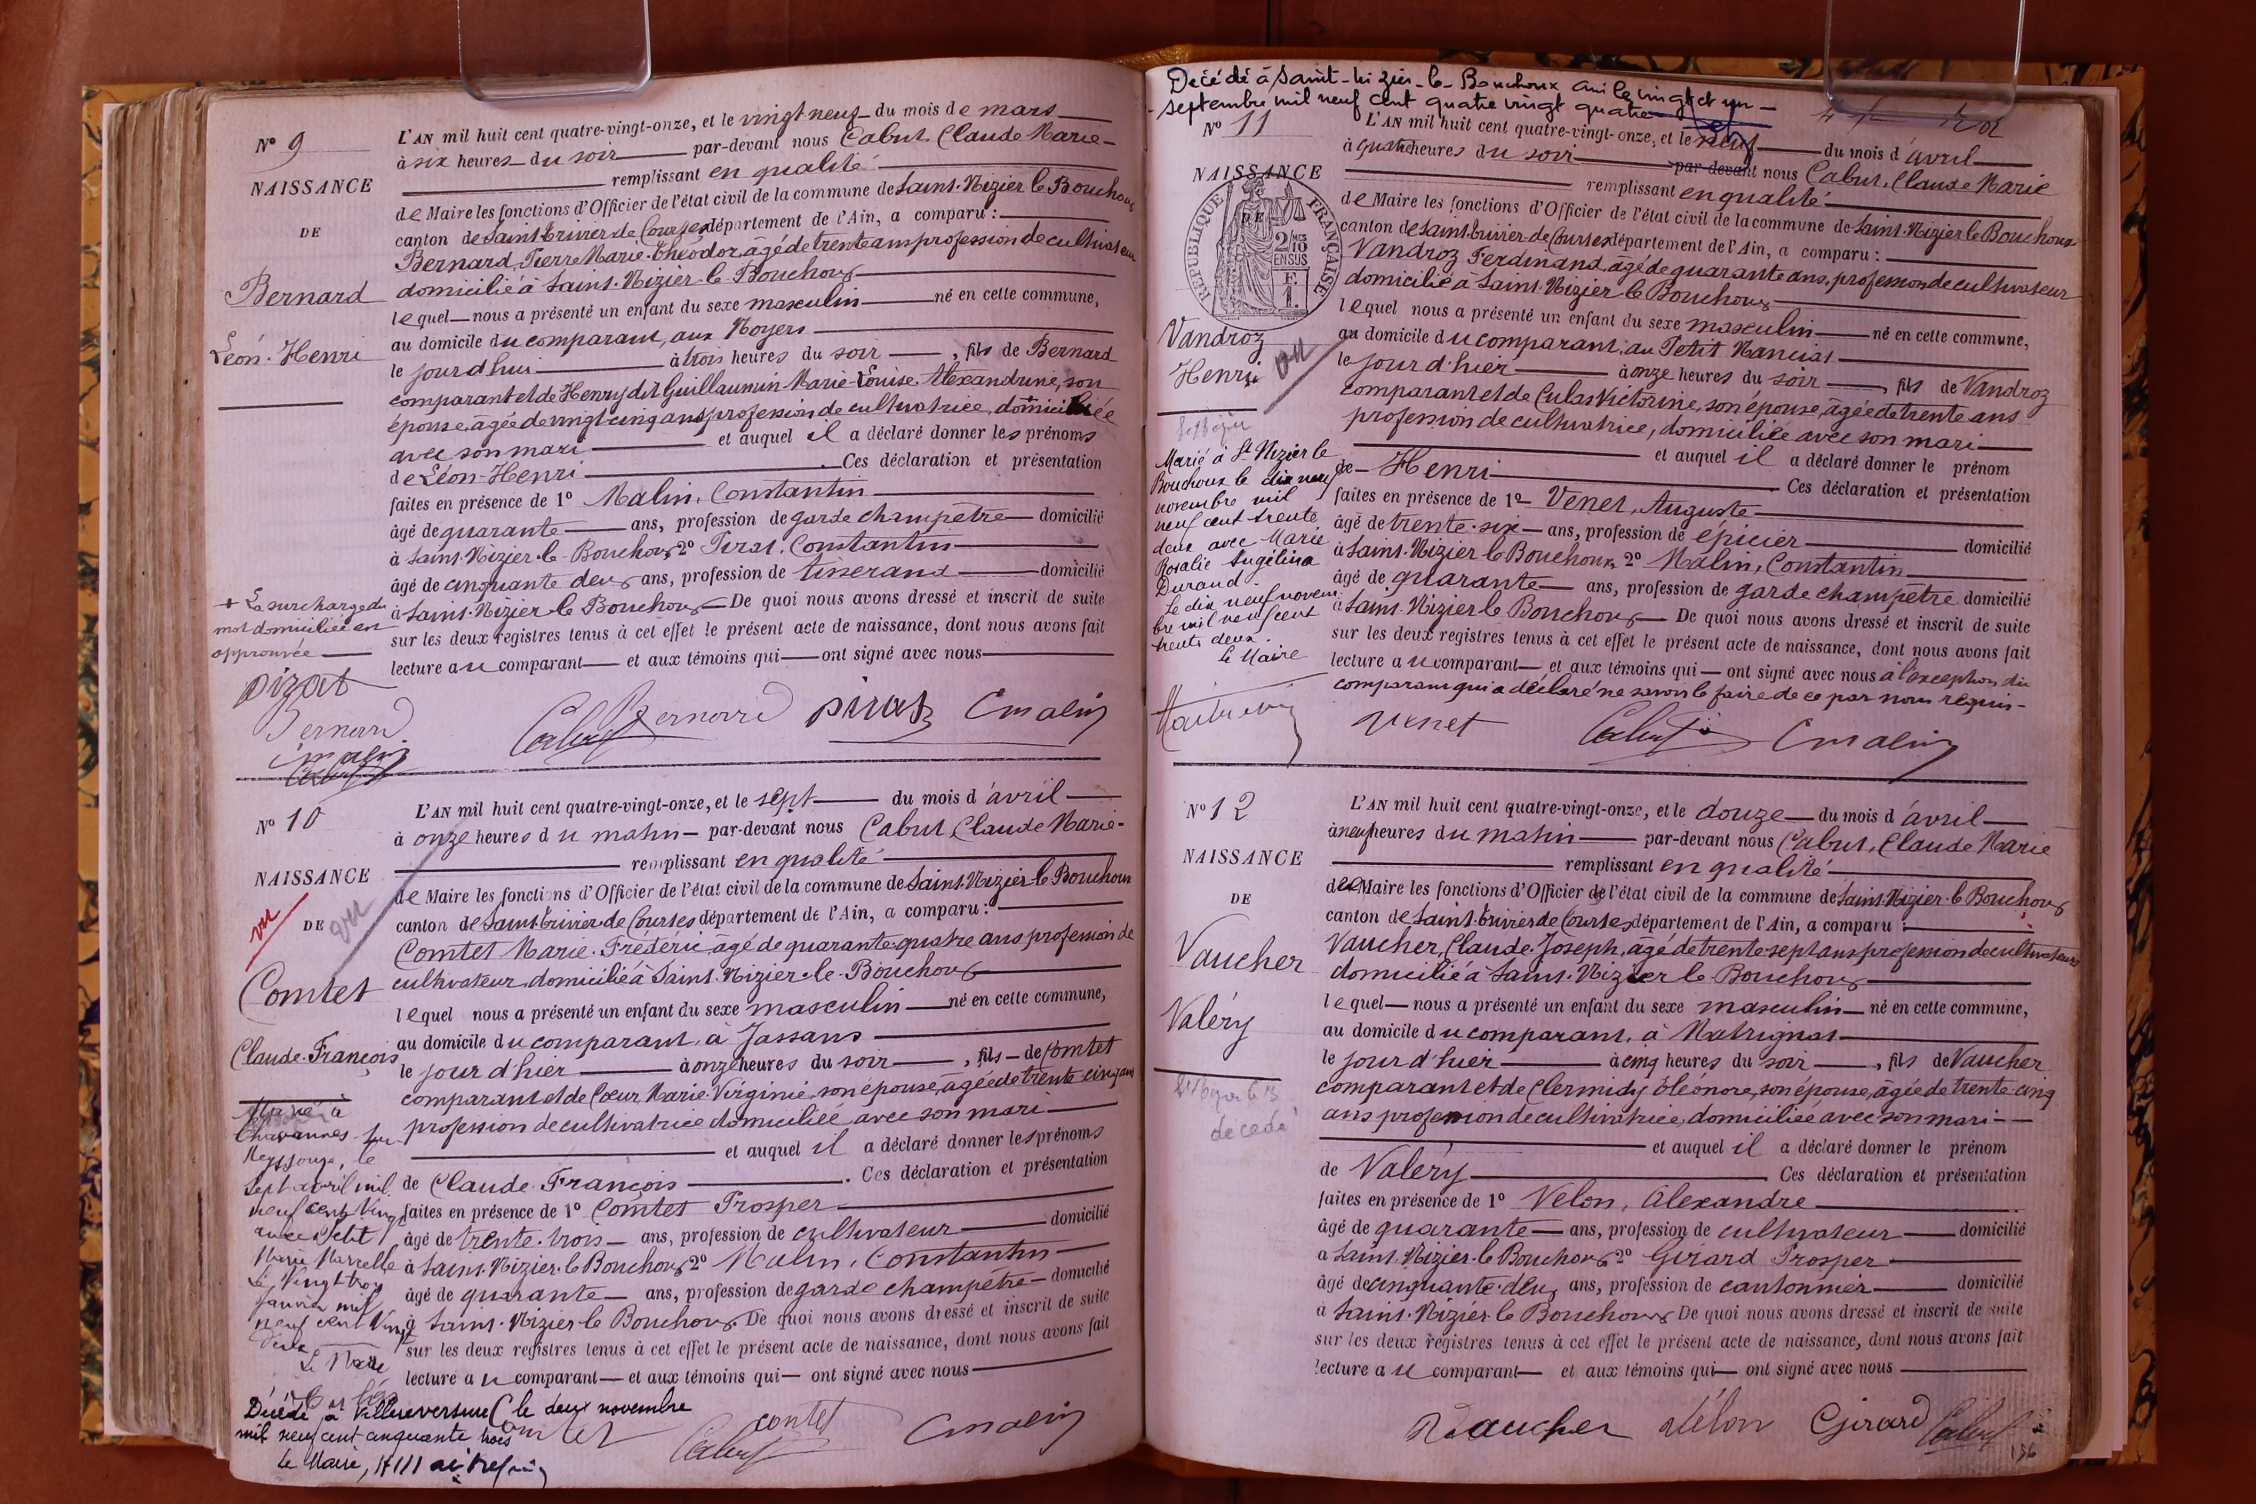 Nº 9
NAISSANCE
DE
Bernard
Léon-Henri
L'AN mil huit cent quatre-vingt-onze, et le vingt neuf du mois de mars
à six heures du soir par-devant nous Cabut, Claude Marie
remplissant en qualité
de Maire les fonctions d'Officier de l'état civil de la commune de Saint-Nizier le Bouchoux
canton de Saint-Trivier de Courtes département de l'Ain, a comparu :
Bernard, Pierre Marie-Théodor, âgé de trente ans profession de cultivateur
domicilié à Saint-Nizier-le-Bouchoux
lequel nous a présenté un enfant du sexe masculin né en cette commune,
au domicile du comparant, aux Noyers
le jour d'hui à trois heures du soir, fils de Bernard
comparant et de Henry dit Guillaumin Marie-Louise Alexandrine, son
épouse, âgée de vingt-cinq ans profession de cultivatrice, domiciliée
avec son mari et auquel il a déclaré donner les prénoms
de Léon-Henri Ces déclaration et présentation
faites en présence de 1º Malin, Constantin
âgé de quarante ans, profession de garde champêtre domicilié
à Saint-Nizier-le-Bouchoux 2º Pirat, Constantin
âgé de cinquante deux ans, profession de tisserand domicilié
à Saint-Nizier-le Bouchoux De quoi nous avons dressé et inscrit de suite
sur les deux registres tenus à cet effet le présent acte de naissance, dont nous avons fait
lecture au comparant et aux témoins qui ont signé avec nous
+ La surcharge du
mot domiciliée est
approuvée
pirat
Bernard
Cmalin
Cabut
Cabut Bernard pirat Cmalin
Nº 10
NAISSANCE
DE
vu
vu
Comtet
Claude-François
L'AN mil huit cent quatre-vingt-onze, et le sept du mois d'avril
à onze heures du matin par-devant nous Cabut, Claude Marie
remplissant en qualité
de Maire les fonctions d'Officier de l'état civil de la commune de Saint-Nizier-le Bouchoux
canton de Saint-Trivier-de Courtes département de l'Ain, a comparu :
Comtet Marie-Frédéric, âgé de quarante-quatre ans profession de
cultivateur, domicilié à Saint-Nizier-le-Bouchoux
lequel nous a présenté un enfant du sexe masculin né en cette commune,
au domicile du comparant, à Jassans
le jour d'hier à onze heures du soir, fils de Comtet
comparant et de Cœur, Marie-Virginie, son épouse, âgée de trente cinq ans
profession de cultivatrice domiciliée avec son mari
et auquel il a déclaré donner les prénoms
de Claude François. Ces déclaration et présentation
faites en présence de 1º Comtet Prosper
âgé de trente-trois ans, profession de cultivateur domicilié
à Saint-Nizier-le Bouchoux 2º Malin, Constantin
âgé de quarante ans, profession de garde champêtre domicilié
à Saint-Nizier-le Bouchoux De quoi nous avons dressé et inscrit de suite
sur les deux registres tenus à cet effet le présent acte de naissance, dont nous avons fait
lecture au comparant et aux témoins qui ont signé avec nous
Marié à
Chavannes sur
Reyssouze, le
sept avril mil
neuf cent vingt
avec Petit
Marie Marcelle
Le vingt trois
janvier mil
neuf cent vingt
Le Maire
Décédé à Villereversure le deux novembre
mil neuf cent cinquante trois
Le Maire,
Comtet Cabut contet Cmalin
Décédé à Saint-Nizier-le-Bouchoux Ain le vingt et un
septembre mil neuf cent quatre vingt quatre
Nº 11
NAISSANCE
DE
RÉPUBLIQUE FRANÇAISE
2/10
EN SUS
F.
1.
Vandroz
Henri
vu
L'AN mil huit cent quatre-vingt-onze, et le neuf du mois d'avril
à quatre heures du soir par-devant nous Cabut, Claude Marie
remplissant en qualité
de Maire les fonctions d'Officier de l'état civil de la commune de Saint-Nizier le Bouchoux
canton de Saint-Trivier-de Courtes département de l'Ain, a comparu :
Vandroz Ferdinand, âgé de quarante ans, profession de cultivateur
domicilié à Saint-Nizier le Bouchoux
lequel nous a présenté un enfant du sexe masculin né en cette commune,
au domicile du comparant, au Petit Manciat
le jour d'hier à onze heures du soir, fils de Vandroz
comparant et de Culas Victorine, son épouse, âgée de trente ans
profession de cultivatrice, domiciliée avec son mari
et auquel il a déclaré donner le prénom
de Henri Ces déclaration et présentation
faites en présence de 1º Venet, Auguste
âgé de trente-six ans, profession de épicier domicilié
à Saint-Nizier le Bouchoux 2º Malin, Constantin
âgé de quarante ans, profession de garde champêtre domicilié
à Saint-Nizier le Bouchoux De quoi nous avons dressé et inscrit de suite
sur les deux registres tenus à cet effet le présent acte de naissance, dont nous avons fait
lecture au comparant et aux témoins qui ont signé avec nous à l'exception du
comparant qui a déclaré ne savoir le faire de ce par nous requis
Marié à St Nizier le
Bouchoux le dix neuf
novembre mil
neuf cent trente
deux avec Marie
Rosalie Angélina
Durand
Le dix neuf novem
bre mil neuf cent
trente deux.
Le Maire
venet Cabut Cmalin
Nº 12
NAISSANCE
DE
Vaucher
Valéry
décédé
L'AN mil huit cent quatre-vingt-onze, et le douze du mois d'avril
à neuf heures du matin par-devant nous Cabut, Claude Marie
remplissant en qualité
de Maire les fonctions d'Officier de l'état civil de la commune de Saint-Nizier-le Bouchoux
canton de Saint-Trivier de Courtes département de l'Ain, a comparu :
Vaucher, Claude-Joseph, âgé de trente-sept ans profession de cultivateur
domicilié à Saint-Nizier le-Bouchoux
lequel nous a présenté un enfant du sexe masculin né en cette commune,
au domicile du comparant, à Matrignat
le jour d'hier à cinq heures du soir, fils de Vaucher
comparant et de Clermidy Eléonore, son épouse, âgée de trente-cinq
ans profession de cultivatrice, domiciliée avec son mari
et auquel il a déclaré donner le prénom
de Valéry Ces déclaration et présentation
faites en présence de 1º Velon, Alexandre
âgé de quarante ans, profession de cultivateur domicilié
à Saint-Nizier-le Bouchoux 2º Girard Prosper
âgé de cinquante-deux ans, profession de cantonnier domicilié
à Saint-Nizier le Bouchoux De quoi nous avons dressé et inscrit de suite
sur les deux registres tenus à cet effet le présent acte de naissance, dont nous avons fait
lecture au comparant et aux témoins qui ont signé avec nous
Vaucher vélon Girard Cabut
136